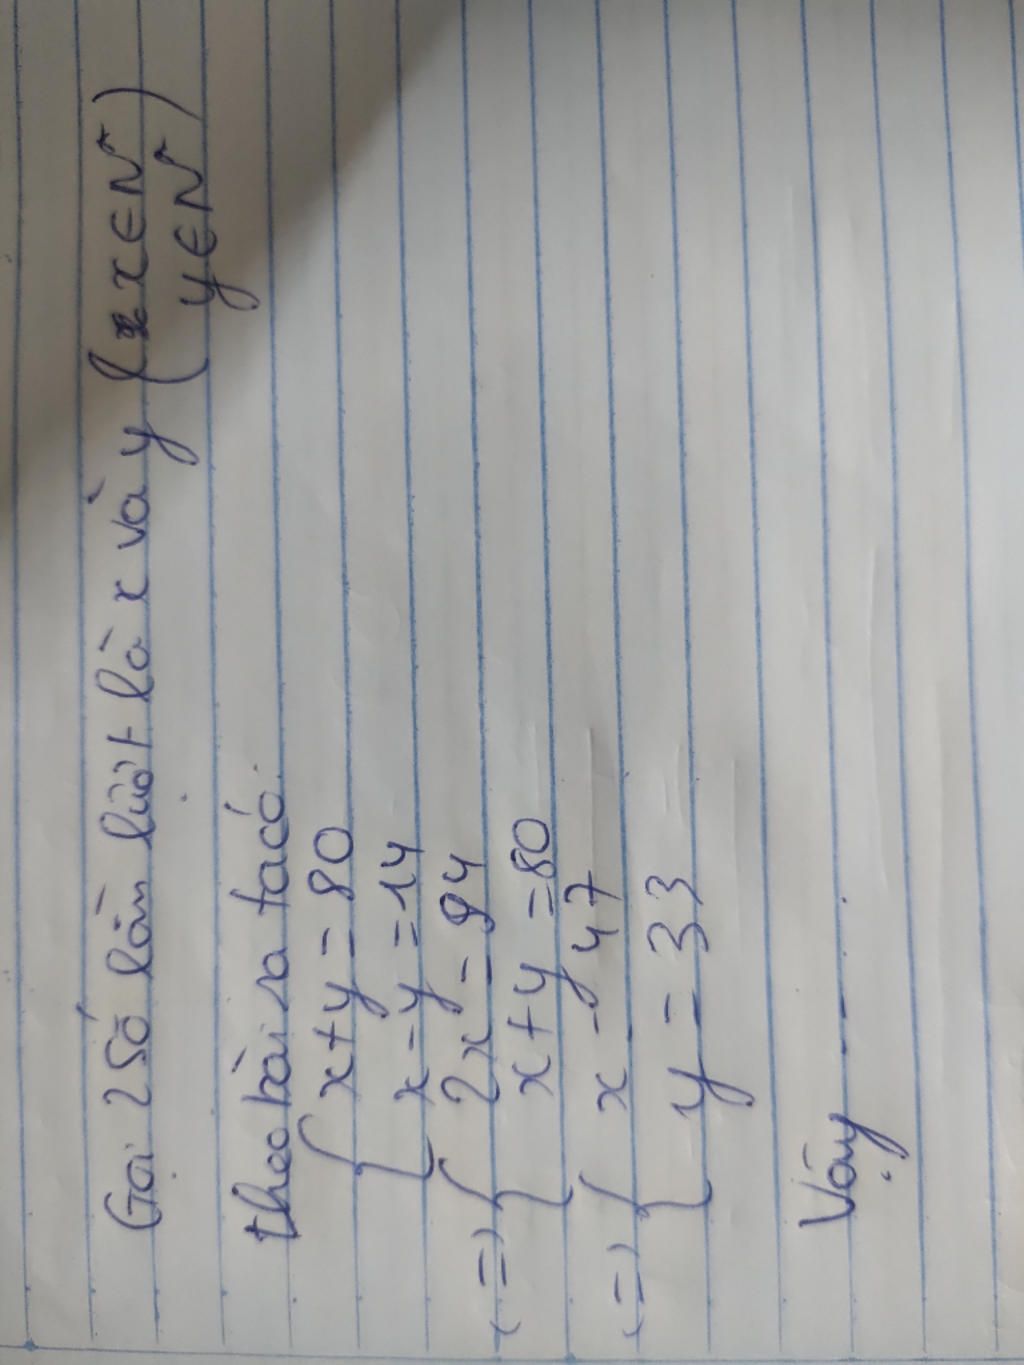 Gọi 2 số lần lượt là x và y (x∈N
y∈N)
theo bài ra ta có
{ x+y = 80
x-y = 14
<=> { 2x = 94
x+y = 80
<=> { x = 47
y = 33
Vậy - - - .